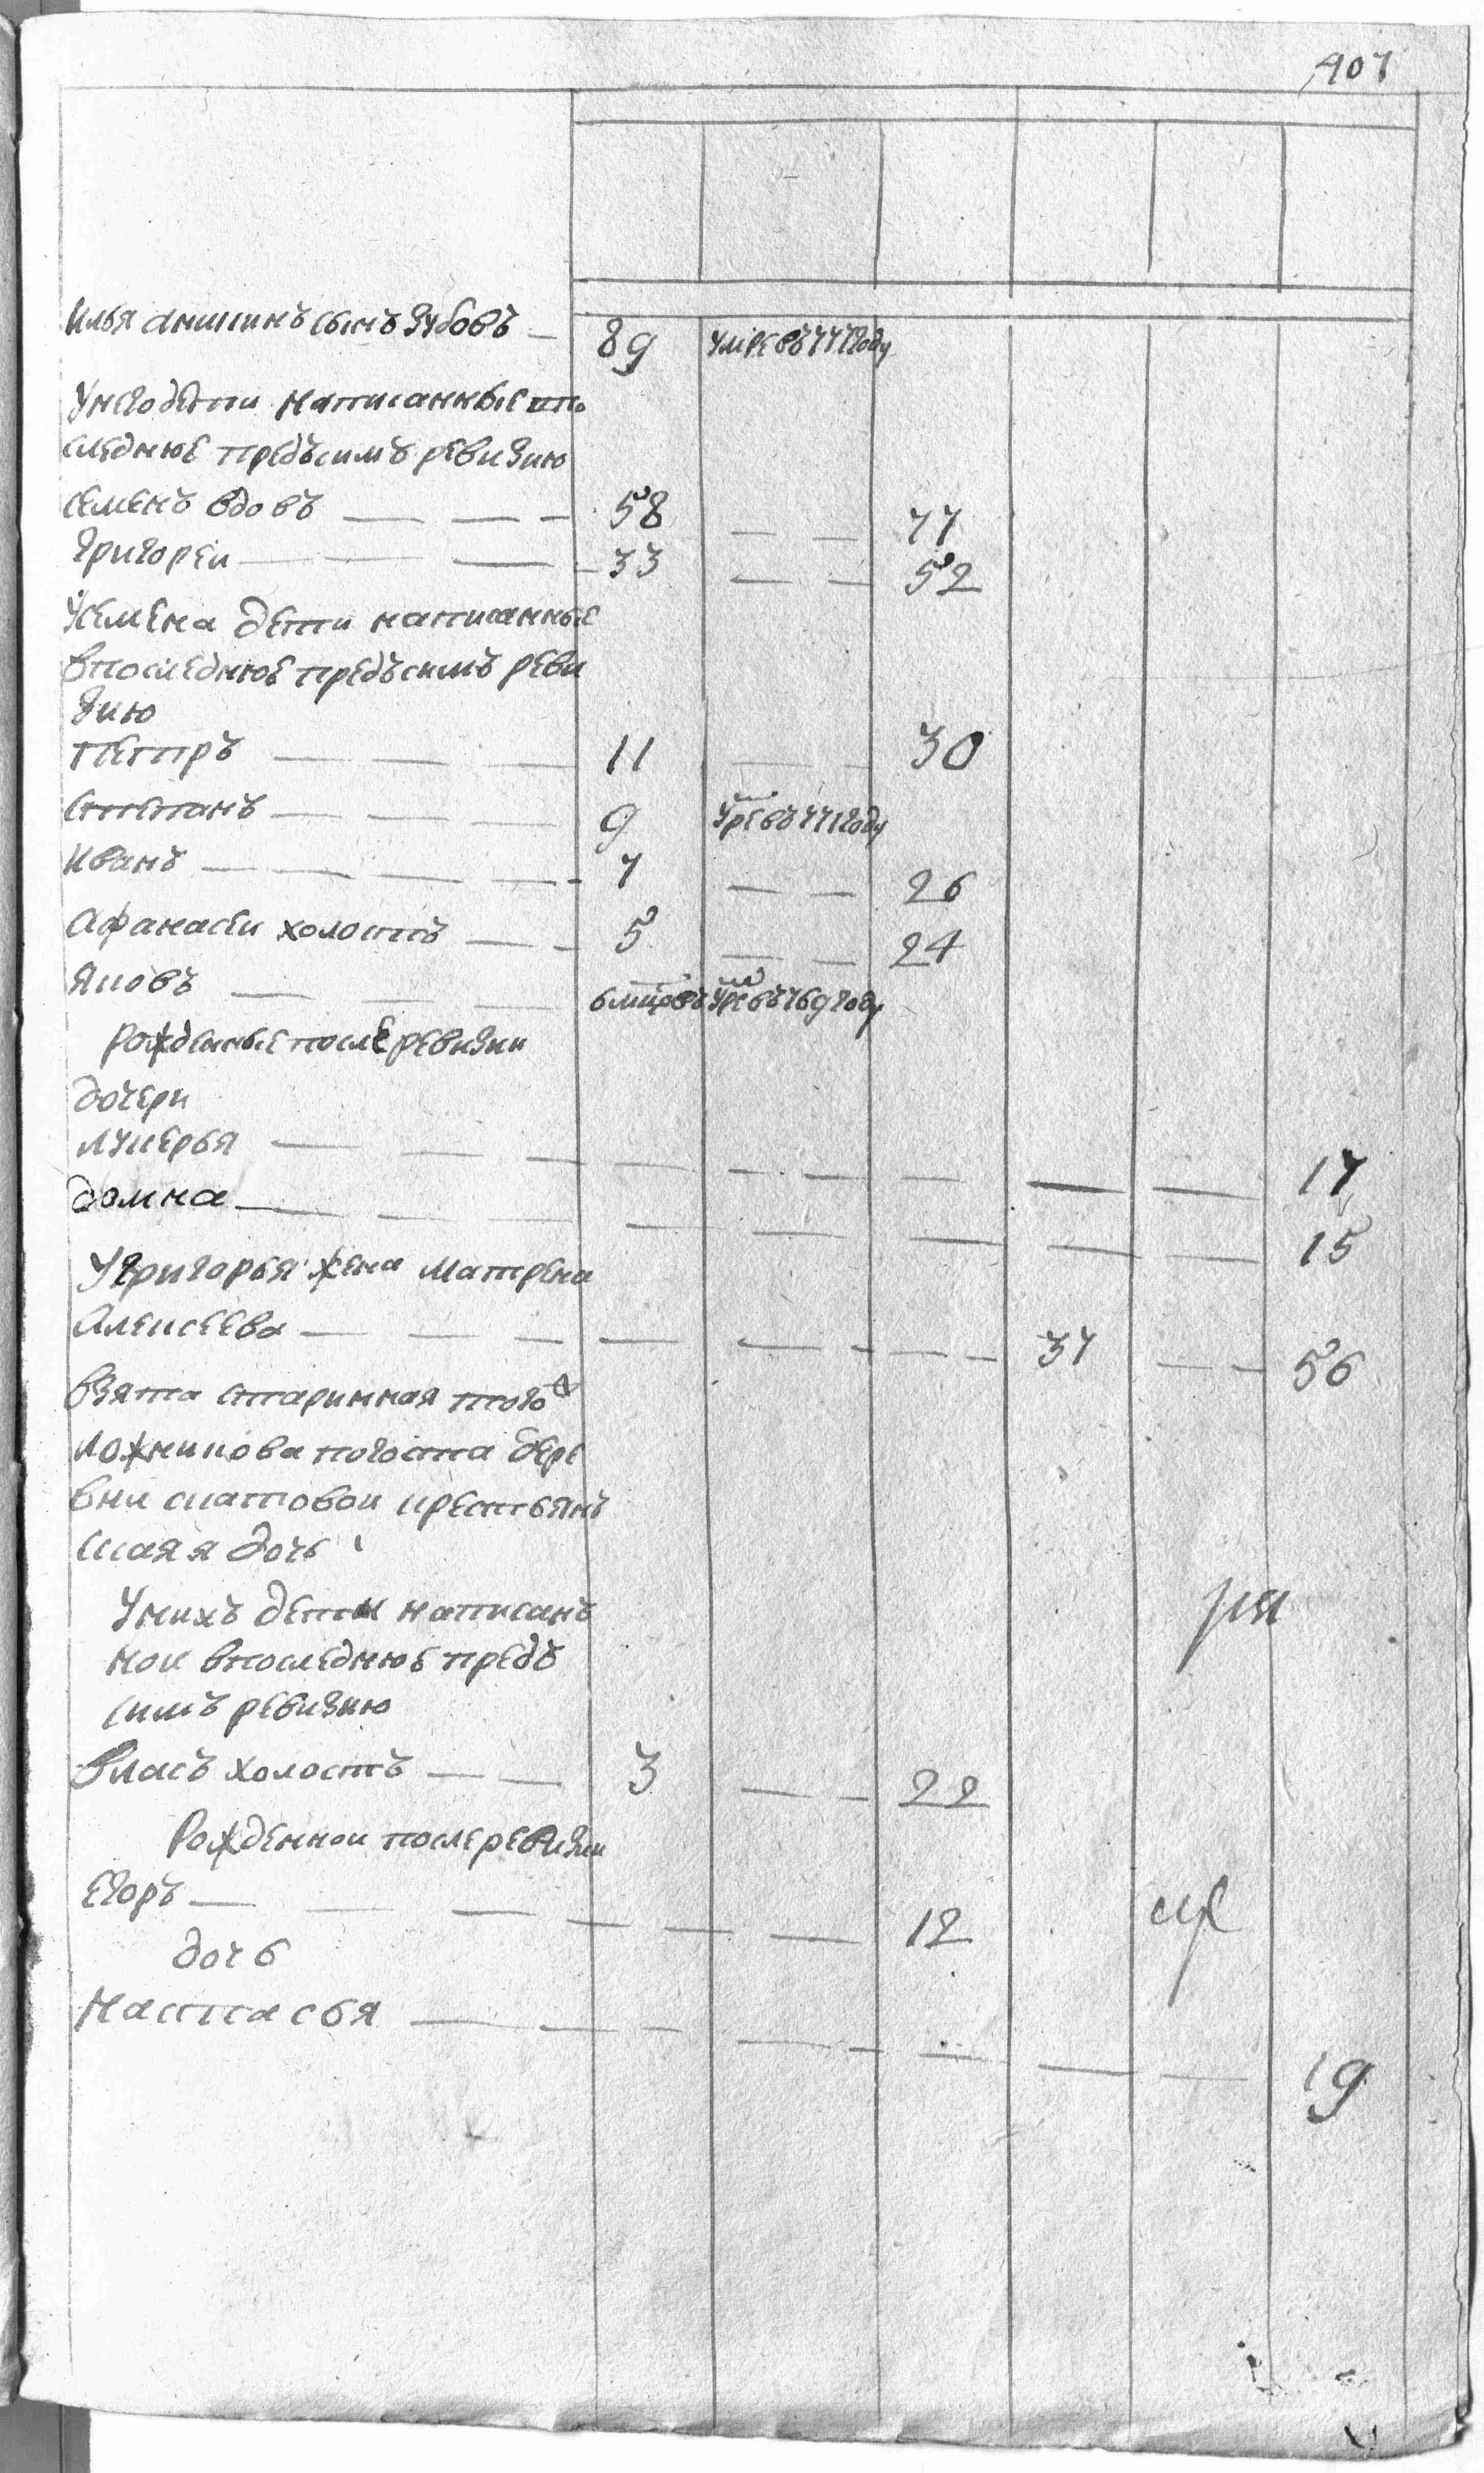 407
Илья аникинъ сынъ Зубовъ — 89 умре въ 777 году
Унего дети написанные впо
следнюе предъ симъ ревизию
семенъ вдовъ — — — 58 — — 77
Григореи — — 33 — — 52
Усемена дети написанные
впоследнюе предъсимъ реви
зию
Петръ — — — 11 — — 30
Степанъ — — — 9 умре въ 771 году
Иванъ — — — — 7 — — 26
Афанасеи холостъ — — 5 — — 24
Яковъ — — — 6 мцовъ умре въ 769 году
Рожденные после ревизии
дочери
Лукерья — — — — — — — — — 17
домна — — — — — — — — — 15
Угригорья жена матрена
Алексеева — — — — — — — — 37 — — 56
взята старинная того
ложникова погоста дере
вни скатовои крестьянъ
ская дочь
Унихъ дети написанъ
нои впоследнюе предъ
симъ ревизию
Власъ холостъ — — 3 — — 22
Рожденнои после ревизии
Егоръ — — — — — — — 12
дочь
Настасья — — — — — — — — 19